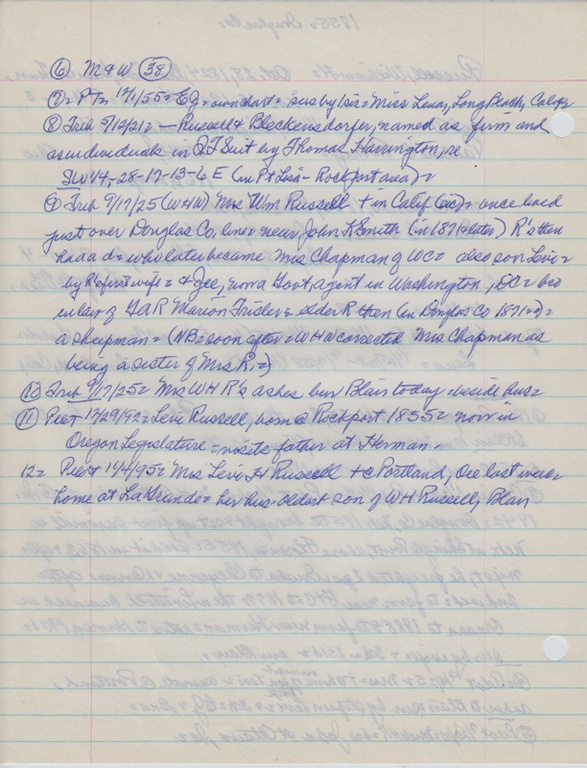 ⑥ M & W ㊳
⑦ = PT = 11/1/55 = EG = own chart = sus by 1 sis = Miss Lena, Long Beach, Calif =
⑧ Trib 5/12/21 = — Russell & Bleckensdorfer, named as firm and
as individuals in QT Suit by Thomas Harrington, re
SW 1/4, -28-17-13-6 E (in Pt Lisa - Rockport area) =
⑨ Trib 9/17/25 (WHW) Mrs Wm Russell + in Calif (ae) = once lived
just over Douglas Co, line = near John K Smith (in 1871 & later) R's then
had a d = who later became Mrs Chapman of WC = also son Levi =
by R's first wife = & Joe, now a Govt, agent in Washington, DC = bro
in law of GAR Marion Frisler = elder R then (in Douglas Co 1871 =) =
a sheepman = (NB = soon after = WHW corrected Mrs Chapman as
being a sister of Mrs R. =)
⑩ Trib 9/17/25 = Mrs WH R's ashes bur Blair today = beside hus =
⑪ Pilot 12/29/92 = Levi Russell, born @ Rockport 1855 = now in
Oregon Legislature = visits father at Herman.
12 = Pilot 11/4/95 = Mrs Levi H Russell + @ Portland, Ore last week
home at LaGrande = her hus oldest son of WH Russell, Blair